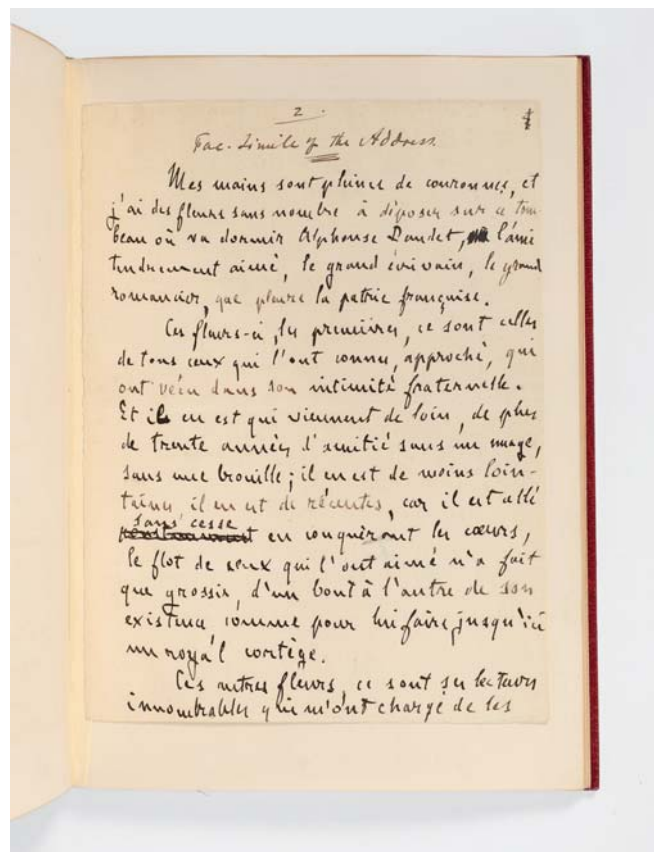 2.
Fac-Simile of the Address
Mes mains sont pleines de couronnes, et
j'ai des fleurs sans nombre à déposer sur ce tom-
beau où va dormir Alphonse Daudet, l'ami
tendrement aimé, le grand écrivain, le grand
romancier, que pleure la patrie française.
Ces fleurs-ci, les premières, ce sont celles
de tous ceux qui l'ont connu, approché, qui
ont vécu dans son intimité fraternelle.
Et il en est qui viennent de loin, de plus
de trente années d'amitié sans un nuage,
sans une brouille ; il en est de moins loin-
taines, il en est de récentes, car il est allé
sans cesse
en conquérant les cœurs,
le flot de ceux qui l'ont aimé n'a fait
que grossir, d'un bout à l'autre de son
existence, comme pour lui faire jusqu'ici
un royal cortège.
Ces autres fleurs, ce sont ses lecteurs
innombrables qui m'ont chargé de les